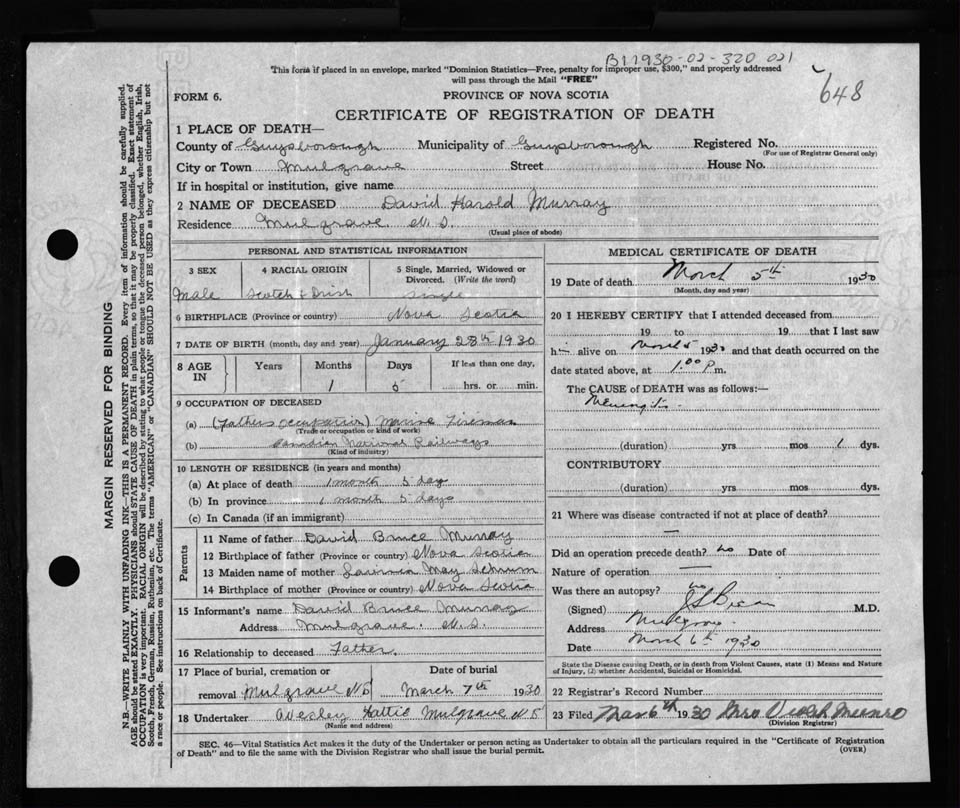 B11930-02-320 021
This form if placed in an envelope, marked "Dominion Statistics—Free, penalty for improper use, $300," and properly addressed
will pass through the Mail "FREE"
648
FORM 6.
PROVINCE OF NOVA SCOTIA
CERTIFICATE OF REGISTRATION OF DEATH
1 PLACE OF DEATH—
County of Guysborough Municipality of Guysborough Registered No.
(For use of Registrar General only)
City or Town Mulgrave Street House No.
If in hospital or institution, give name
2 NAME OF DECEASED David Harold Murray
Residence Mulgrave N.S.
(Usual place of abode)
MARGIN RESERVED FOR BINDING
N.B.—WRITE PLAINLY WITH UNFADING INK—THIS IS A PERMANENT RECORD. Every item of information should be carefully supplied.
AGE should be stated EXACTLY. PHYSICIANS should STATE CAUSE OF DEATH in plain terms, so that it may be properly classified. Exact statement of
OCCUPATION is very important. RACIAL ORIGIN will be described by stating to what people or tongue the deceased person belonged, whether English, Irish,
Scotch, French, German, Russian, Ruthenian, etc. The terms "AMERICAN" or "CANADIAN" SHOULD NOT BE USED as they express citizenship but not
a race or people. See instructions on back of Certificate.
PERSONAL AND STATISTICAL INFORMATION
3 SEX 4 RACIAL ORIGIN 5 Single, Married, Widowed or
Divorced. (Write the word)
Male Scotch & Irish Single
6 BIRTHPLACE (Province or country) Nova Scotia
7 DATE OF BIRTH (month, day and year) January 28th 1930
8 AGE IN Years Months Days If less than one day,
1 5 hrs. or min.
9 OCCUPATION OF DECEASED
(a) (Fathers occupation) Marine Fireman
(Trade or occupation or kind of work)
(b) Canadian National Railways
(Kind of industry)
10 LENGTH OF RESIDENCE (in years and months)
(a) At place of death 1 month 5 days
(b) In province 1 month 5 days
(c) In Canada (if an immigrant)
Parents
11 Name of father David Bruce Murray
12 Birthplace of father (Province or country) Nova Scotia
13 Maiden name of mother May
14 Birthplace of mother (Province or country) Nova Scotia
15 Informant's name David Bruce Murray
Address Mulgrave. N.S.
16 Relationship to deceased Father.
17 Place of burial, cremation or Date of burial
removal Mulgrave NS March 7th 1930
18 Undertaker Wesley Hattie Mulgrave N S
(Name and address)
MEDICAL CERTIFICATE OF DEATH
19 Date of death March 5th 1930
(Month, day and year)
20 I HEREBY CERTIFY that I attended deceased from
19 to 19 that I last saw
him alive on March 5 1930 and that death occurred on the
date stated above, at 1.00 P m.
The CAUSE of DEATH was as follows:—
Meningitis
(duration) yrs mos 1 dys.
CONTRIBUTORY
(duration) yrs mos dys.
21 Where was disease contracted if not at place of death?
—
Did an operation precede death? no Date of
Nature of operation —
Was there an autopsy? no
(Signed) M.D.
Address Mulgrave
Date March 6th 1930
State the Disease causing Death, or in death from Violent Causes, state (1) Means and Nature
of Injury, (2) whether Accidental, Suicidal or Homicidal.
22 Registrar's Record Number
23 Filed Mar 6th 1930 Mrs Violet Munro
(Division Registrar)
SEC. 46—Vital Statistics Act makes it the duty of the Undertaker or person acting as Undertaker to obtain all the particulars required in the "Certificate of Registration
of Death" and to file the same with the Division Registrar who shall issue the burial permit. (OVER)